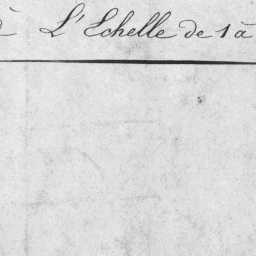 à L'Echelle de 1 à